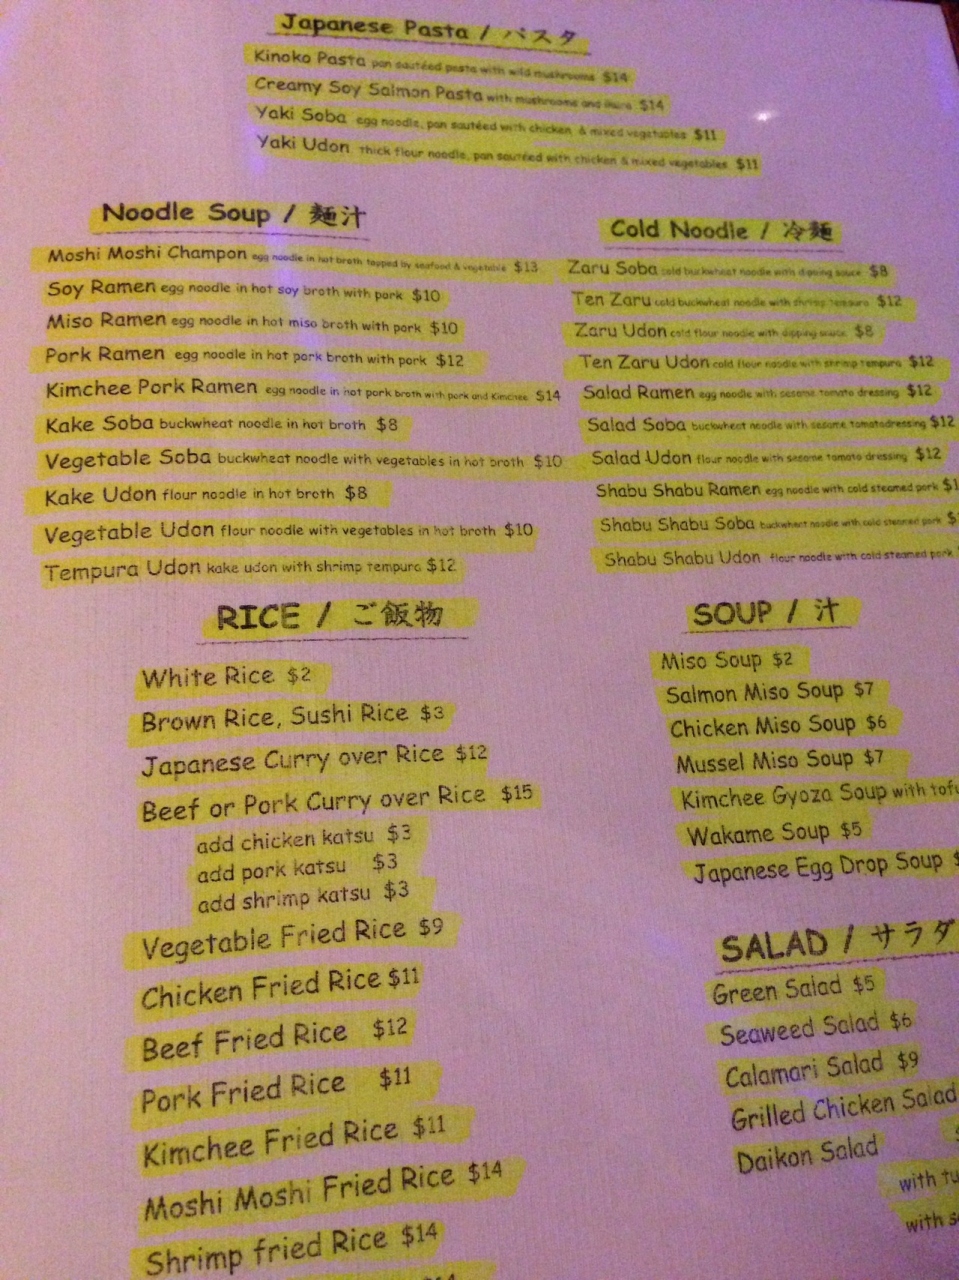 Japanese Pasta / パスタ
Kinoko Pasta pan sautéed pasta with wild mushrooms $14
Creamy Soy Salmon Pasta with mushrooms and $14
Yaki Soba egg noodle, pan sautéed with chicken & mixed vegetables $11
Yaki Udon thick flour noodle, pan sautéed with chicken & mixed vegetables $11
Noodle Soup / 麺汁
Moshi Moshi Champon egg noodle in hot broth topped by seafood & vegetable $13
Soy Ramen egg noodle in hot soy broth with pork $10
Miso Ramen egg noodle in hot miso broth with pork $10
Pork Ramen egg noodle in hot pork broth with pork $12
Kimchee Pork Ramen egg noodle in hot pork broth with pork and Kimchee $14
Kake Soba buckwheat noodle in hot broth $8
Vegetable Soba buckwheat noodle with vegetables in hot broth $10
Kake Udon flour noodle in hot broth $8
Vegetable Udon flour noodle with vegetables in hot broth $10
Tempura Udon kake udon with shrimp tempura $12
Cold Noodle / 冷麺
Zaru Soba cold buckwheat noodle with dipping sauce $8
Ten Zaru cold buckwheat noodle with shrimp tempura $12
Zaru Udon cold flour noodle with dipping sauce $8
Ten Zaru Udon cold flour noodle with shrimp tempura $12
Salad Ramen egg noodle with sesame tomato dressing $12
Salad Soba buckwheat noodle with sesame tomatodressing $12
Salad Udon flour noodle with sesame tomato dressing $12
Shabu Shabu Ramen egg noodle with cold steamed pork
Shabu Shabu Soba buckwheat noodle with cold steamed pork
Shabu Shabu Udon flour noodle with cold steamed pork
RICE / ご飯物
White Rice $2
Brown Rice, Sushi Rice $3
Japanese Curry over Rice $12
Beef or Pork Curry over Rice $15
add chicken katsu $3
add pork katsu $3
add shrimp katsu $3
Vegetable Fried Rice $9
Chicken Fried Rice $11
Beef Fried Rice $12
Pork Fried Rice $11
Kimchee Fried Rice $11
Moshi Moshi Fried Rice $14
Shrimp fried Rice $14
SOUP / 汁
Miso Soup $2
Salmon Miso Soup $7
Chicken Miso Soup $6
Mussel Miso Soup $7
Kimchee Gyoza Soup with tofu
Wakame Soup $5
Japanese Egg Drop Soup
SALAD / サラダ
Green Salad $5
Seaweed Salad $6
Calamari Salad $9
Grilled Chicken Salad
Daikon Salad
with
with